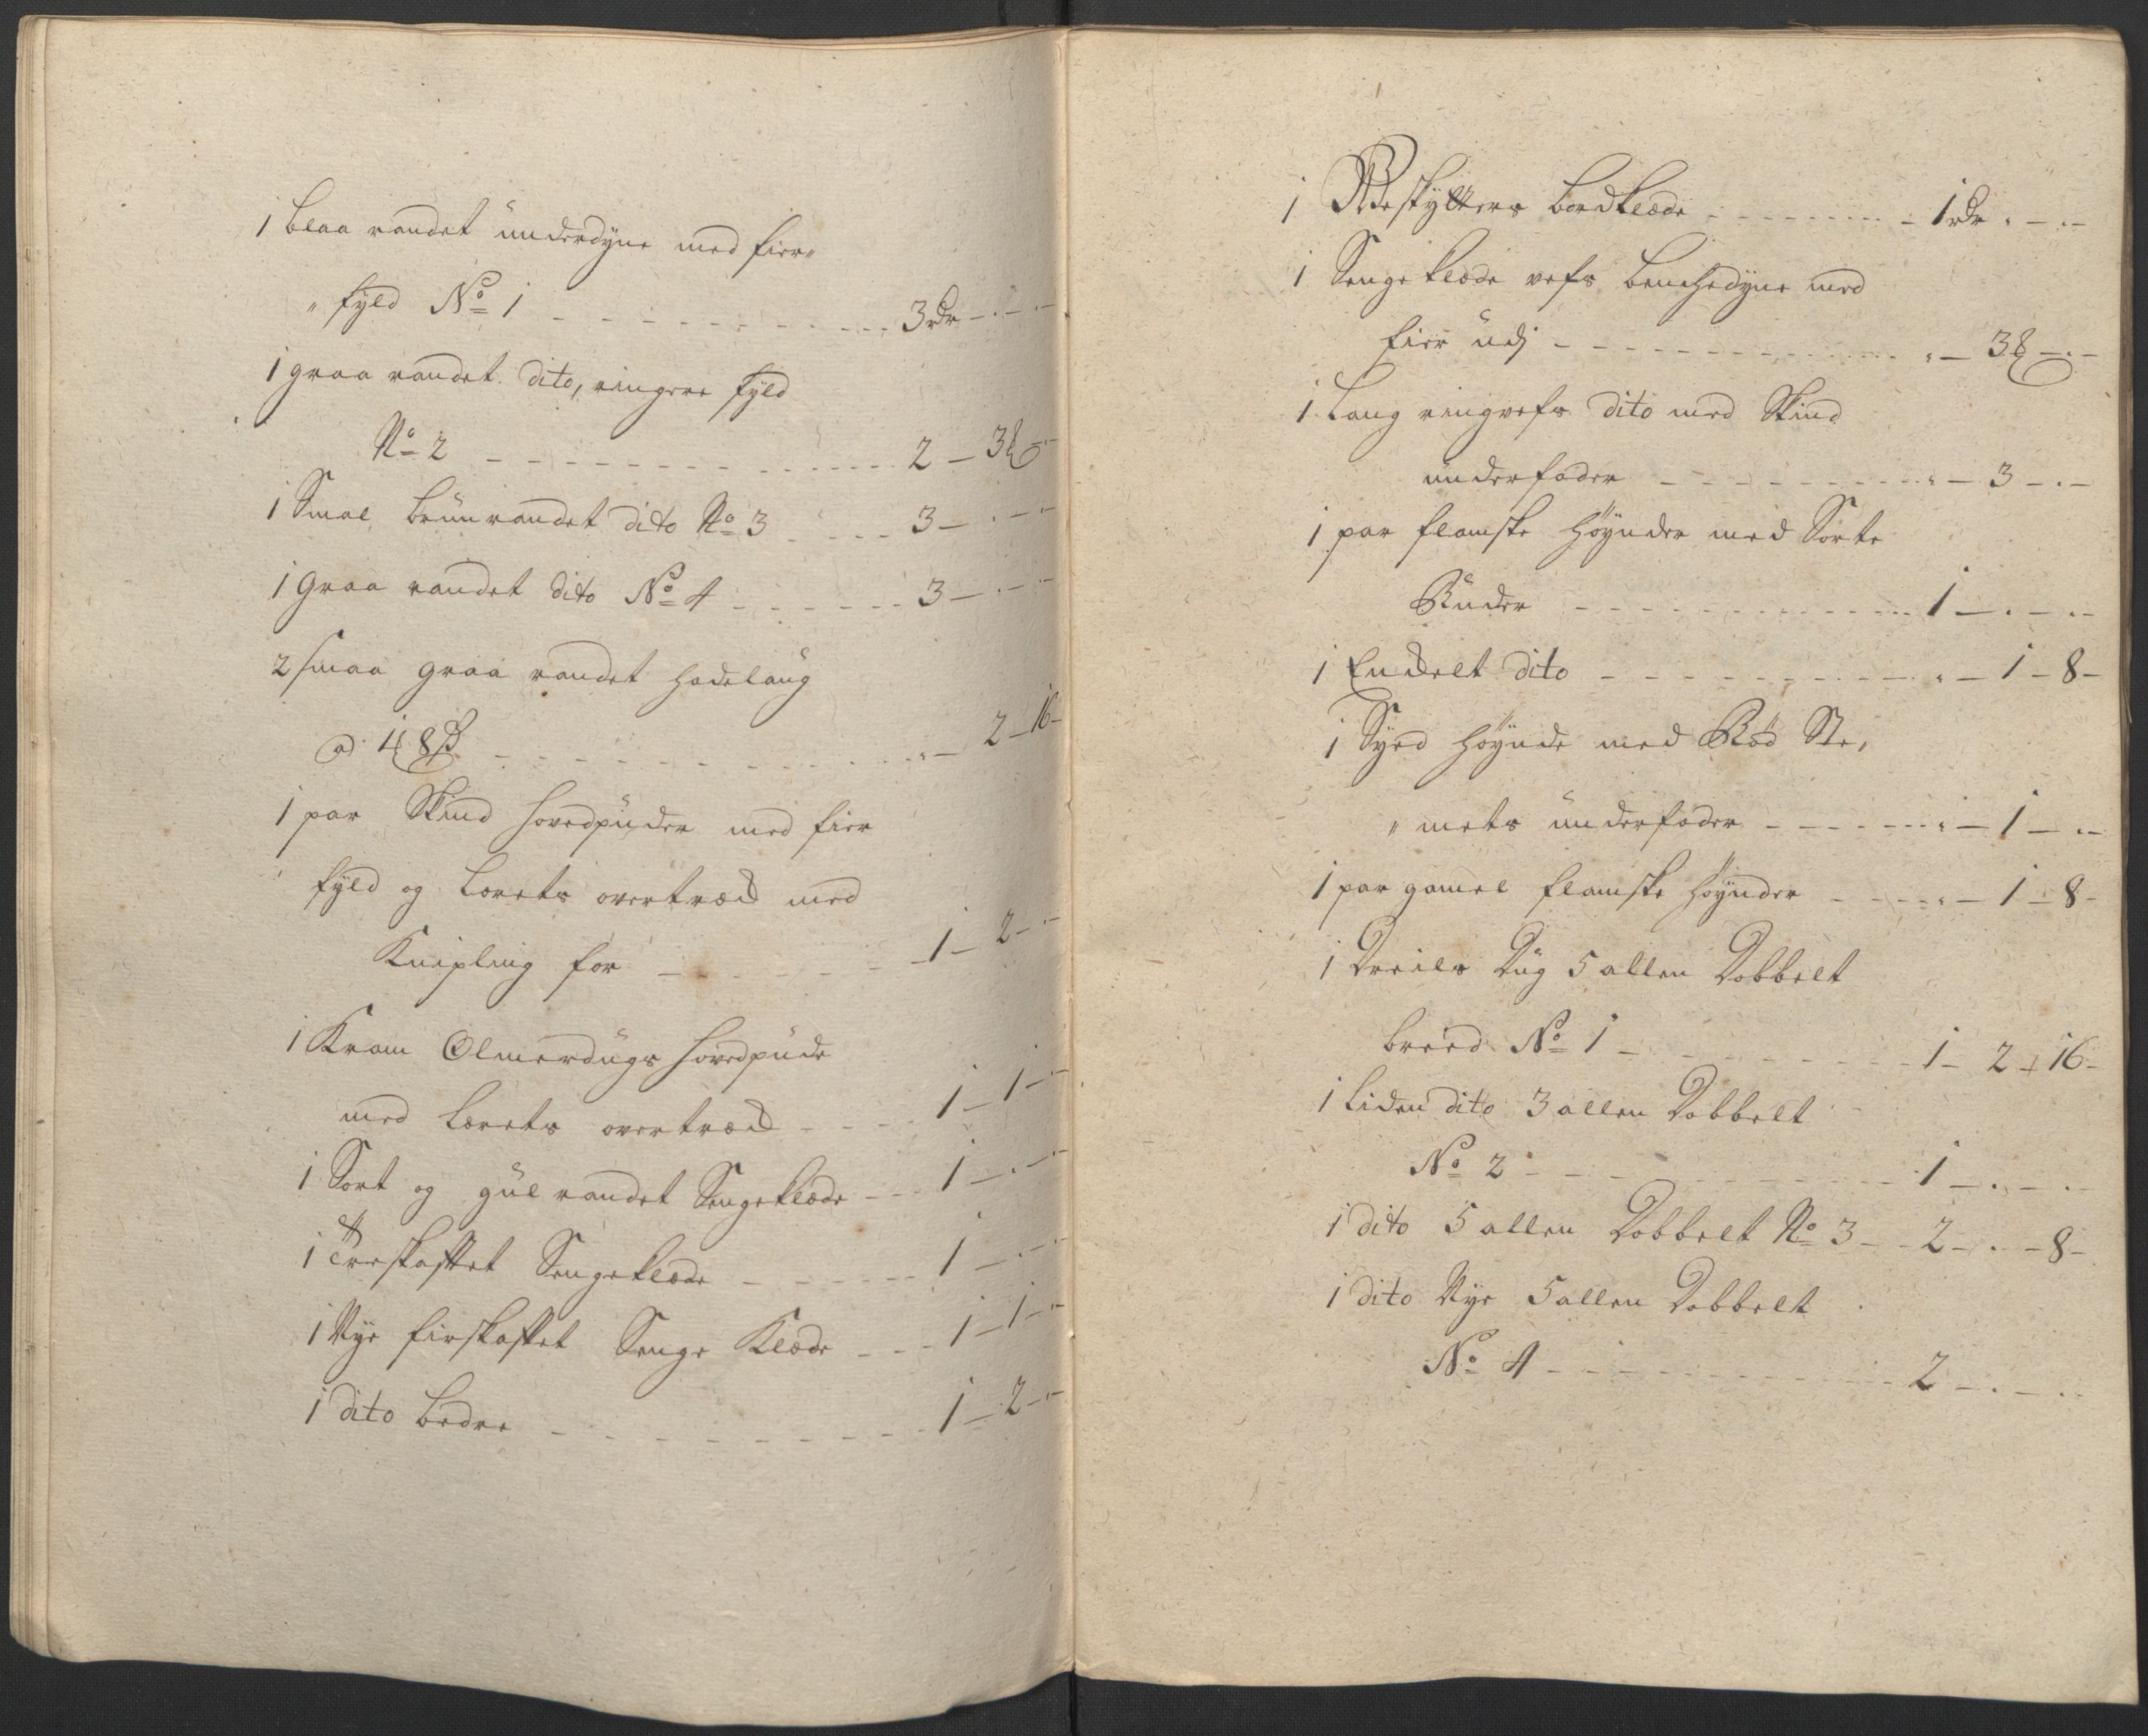 1 blaa randet underdyne med fier„
„fyld No 1 - - - 3rdr - . - . -
1 graa randet dito, ringere fyld
No 2 - - - 2 - 3 -
1 Smal brun randet dito No 3 - - - 3 - . - . -
1 graa randet dito No 4 - - - 3 - . - . -
2 smaa graa randet hodelaug
a 1 8 ß - - - . - 2 - 16 -
1 par Skind hovedpuder med fier
fyld og Lerets overtræk med
Knipling for - - - 1 - 2 - . -
1 Kram Olmerdugs hovedpude
med Lerets overtræk - - - 1 - 1 - . -
1 Sort og gul randet Sengeklæde - - - 1 - . - . -
1 treskafftet Sengeklæde - - - 1 - . - . -
1 Nye firskafftet Senge Klæde - - - 1 - 1 - . -
1 dito bedre - - - 1 - 2 - . -
1 Bordklæde - - - 1rdr . - . -
1 Sengeklæde vefs benchedyne med
fier udj - - - . - 3 - . -
1 Lang ringvefs dito med Skind
underfoder - - - . - 3 - . -
1 par flamske høynder med Sorte
Ruder - - - 1 - . - . -
1 Enckelt dito - - - . - 1 - 8 -
1 Syed høynde med Rød Ste„
„mets underfoder - - - . - 1 - . -
1 par gamel flamske høynder - - - . - 1 - 8 -
1 Dreils Dug 5 allen Dobbelt
breed No 1 - - - 1 - 2 - 16 -
1 liden dito 3 allen Dobbelt
No 2 - - - 1 - . - . -
1 dito 5 allen Dobbelt No 3 - - 2 - . - 8 -
1 dito Nye 5 allen Dobbelt
No 4 - - - 2 - . - . -